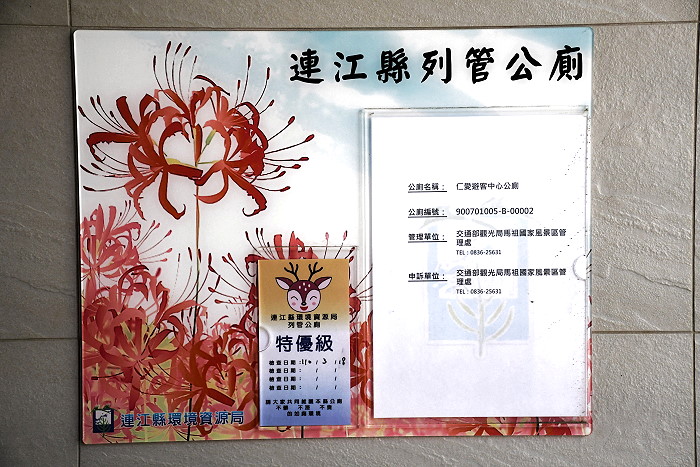 連江縣列管公廁
公廁名稱： 仁愛遊客中心公廁
公廁編號： 900701005-B-00002
管理單位： 交通部觀光局馬祖國家風景區管
理處
TEL : 0836-25631
申訴單位： 交通部觀光局馬祖國家風景區管
理處
TEL : 0836-25631
連江縣環境資源局
列管公廁
特優級
檢查日期：110 / 3 / 18
檢查日期： / /
檢查日期： / /
檢查日期： / /
請大家共同維護本縣公廁
不髒 不溼 不臭
連江縣環境資源局